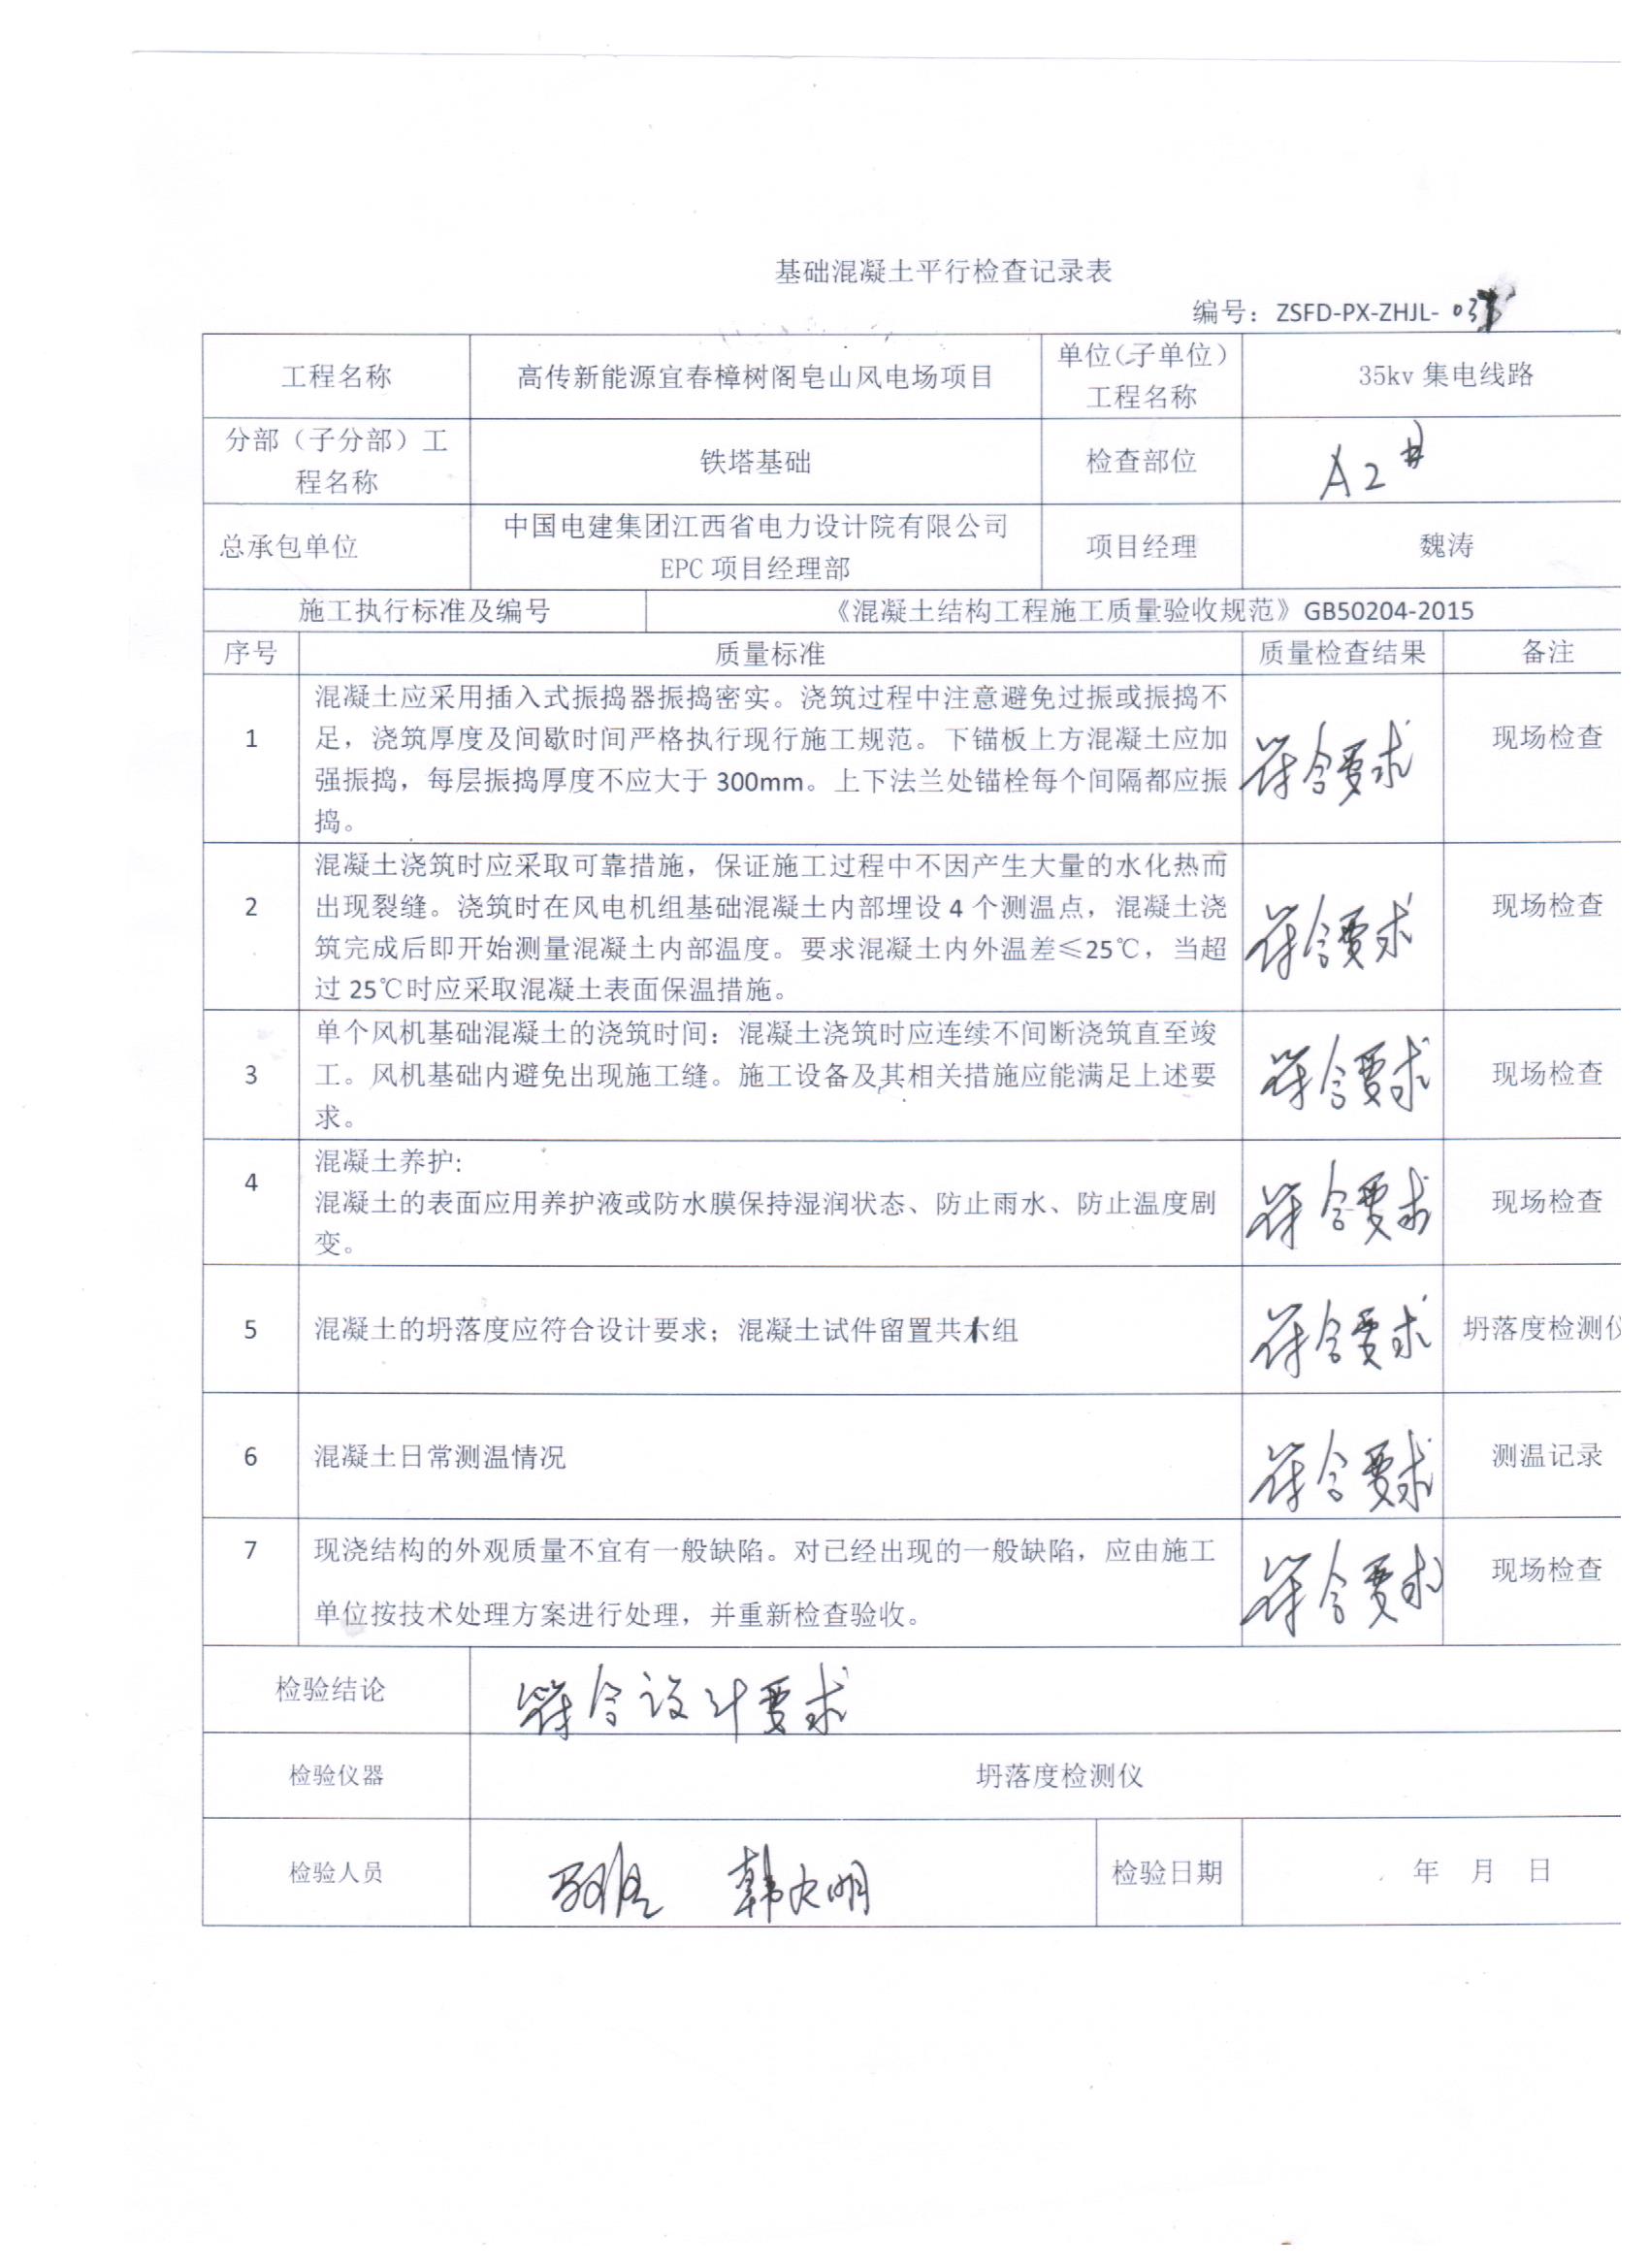 基础混凝土平行检查记录表
编号：ZSFD-PX-ZHJL-03
工程名称 高传新能源宜春樟树阁皂山风电场项目 单位（子单位）工程名称 35kv 集电线路
分部（子分部）工程名称 铁塔基础 检查部位 A2#
总承包单位 中国电建集团江西省电力设计院有限公司 EPC 项目经理部 项目经理 魏涛
施工执行标准及编号 《混凝土结构工程施工质量验收规范》GB50204-2015
序号 质量标准 质量检查结果 备注
1 混凝土应采用插入式振捣器振捣密实。浇筑过程中注意避免过振或振捣不
足，浇筑厚度及间歇时间严格执行现行施工规范。下锚板上方混凝土应加
强振捣，每层振捣厚度不应大于 300mm。上下法兰处锚栓每个间隔都应振
捣。
符合要求 现场检查
2 混凝土浇筑时应采取可靠措施，保证施工过程中不因产生大量的水化热而
出现裂缝。浇筑时在风电机组基础混凝土内部埋设 4 个测温点，混凝土浇
筑完成后即开始测量混凝土内部温度。要求混凝土内外温差≤25℃，当超
过 25℃时应采取混凝土表面保温措施。
符合要求 现场检查
3 单个风机基础混凝土的浇筑时间：混凝土浇筑时应连续不间断浇筑直至竣
工。风机基础内避免出现施工缝。施工设备及其相关措施应能满足上述要
求。
符合要求 现场检查
4 混凝土养护:
混凝土的表面应用养护液或防水膜保持湿润状态、防止雨水、防止温度剧
变。
符合要求 现场检查
5 混凝土的坍落度应符合设计要求；混凝土试件留置共 组 符合要求 坍落度检测仪
6 混凝土日常测温情况 符合要求 测温记录
7 现浇结构的外观质量不宜有一般缺陷。对已经出现的一般缺陷，应由施工
单位按技术处理方案进行处理，并重新检查验收。
符合要求 现场检查
检验结论 符合设计要求
检验仪器 坍落度检测仪
检验人员 检验日期 年 月 日